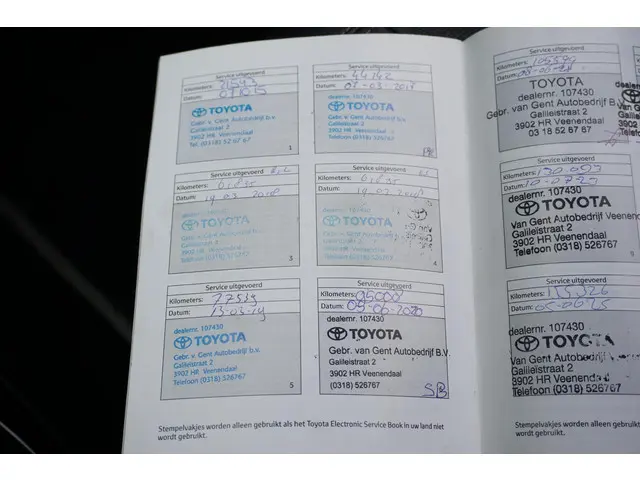 Service uitgevoerd
Kilometers:
Datum:
TOYOTA
Gebr. v. Gent Autobedrijf b.v.
Galileïstraat 2
3902 HR Veenendaal
Tel. (0318) 52 67 67
1
Service uitgevoerd
Kilometers: 44142
Datum:
dealernr. 107430
TOYOTA
Gebr. v. Gent Autobedrijf b.v.
Galileïstraat 2
3902 HR Veenendaal
Telefoon (0318) 526767
Service uitgevoerd
Kilometers:
Datum: 19 03 2018
dealernr. 107430
TOYOTA
Gebr. v. Gent Autobedrijf b.v.
Galileïstraat 2
3902 HR Veenendaal
Telefoon (0318) 526767
3
Service uitgevoerd
Kilometers:
Datum: 19 03 2018
dealernr. 107430
TOYOTA
Galileïstraat 2
3902 HR Veenendaal
Telefoon (0318) 526767
4
Service uitgevoerd
Kilometers: 77539
Datum: 13-03-19
dealernr. 107430
TOYOTA
Gebr. v Gent Autobedrijf b.v.
Galileïstraat 2
3902 HR Veenendaal
Telefoon (0318) 526767
5
Service uitgevoerd
Kilometers: 95000
Datum: 05-06-2020
dealernr. 107430
TOYOTA
Gebr. van Gent Autobedrijf B.V.
Galileïstraat 2
3902 HR Veenendaal
(0318) 526767
SB
Stempelvakjes worden alleen gebruikt als het Toyota Electronic Service Book in uw land niet
wordt gebruikt.
Service uitgevoerd
Kilometers:
Datum:
TOYOTA
dealernr. 107430
Gebr. van Gent Autobedrijf B.V
Galileïstraat 2
3902 HR Veenendaal
03 18 52 67 67
Service uitgevoerd
Kilometers:
Datum:
dealernr. 107430
TOYOTA
Van Gent Autobedrijf Veenendaal
Galileïstraat 2
3902 HR Veenendaal
Telefoon (0318) 526767
Service uitgevoerd
Kilometers:
Datum:
dealernr. 107430
TOYOTA
Van Gent Autobedrijf
Galileïstraat 2
3902 HR Veenendaal
Telefoon (0318) 526767
Stempelvakjes worden alleen
wordt gebruikt.